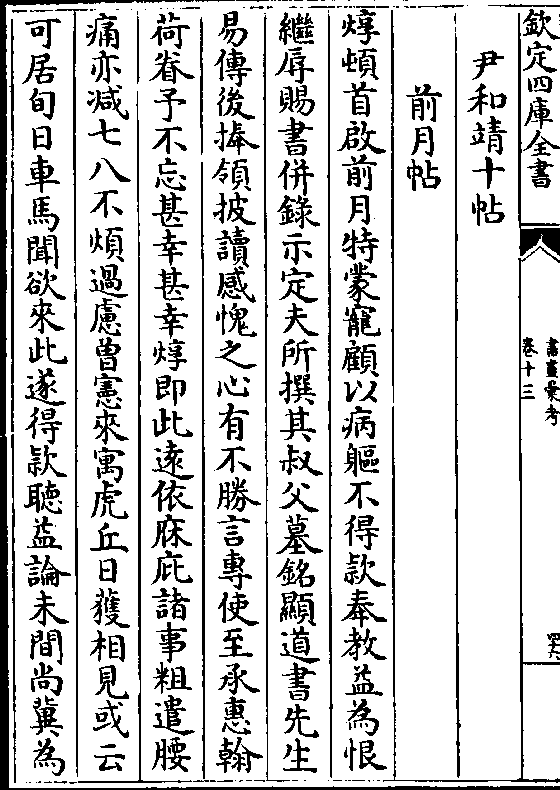 欽定四庫全書
書畫彙考
卷十三
尹和靖十帖
前月帖
焞頓首啟前月特蒙寵顧以病軀不得欵奉教益為恨
繼辱賜書併錄示定夫所撰其叔父墓銘顯道書先生
易傳後捧領披讀感愧之心有不勝言專使至承惠翰
荷眷予不忘甚幸甚幸焞即此遠依庥庇諸事粗遣腰
痛亦减七八不煩過慮曾憲來寓虎丘日獲相見或云
可居旬日車馬聞欲來此遂得欵聽益論未間尚冀為